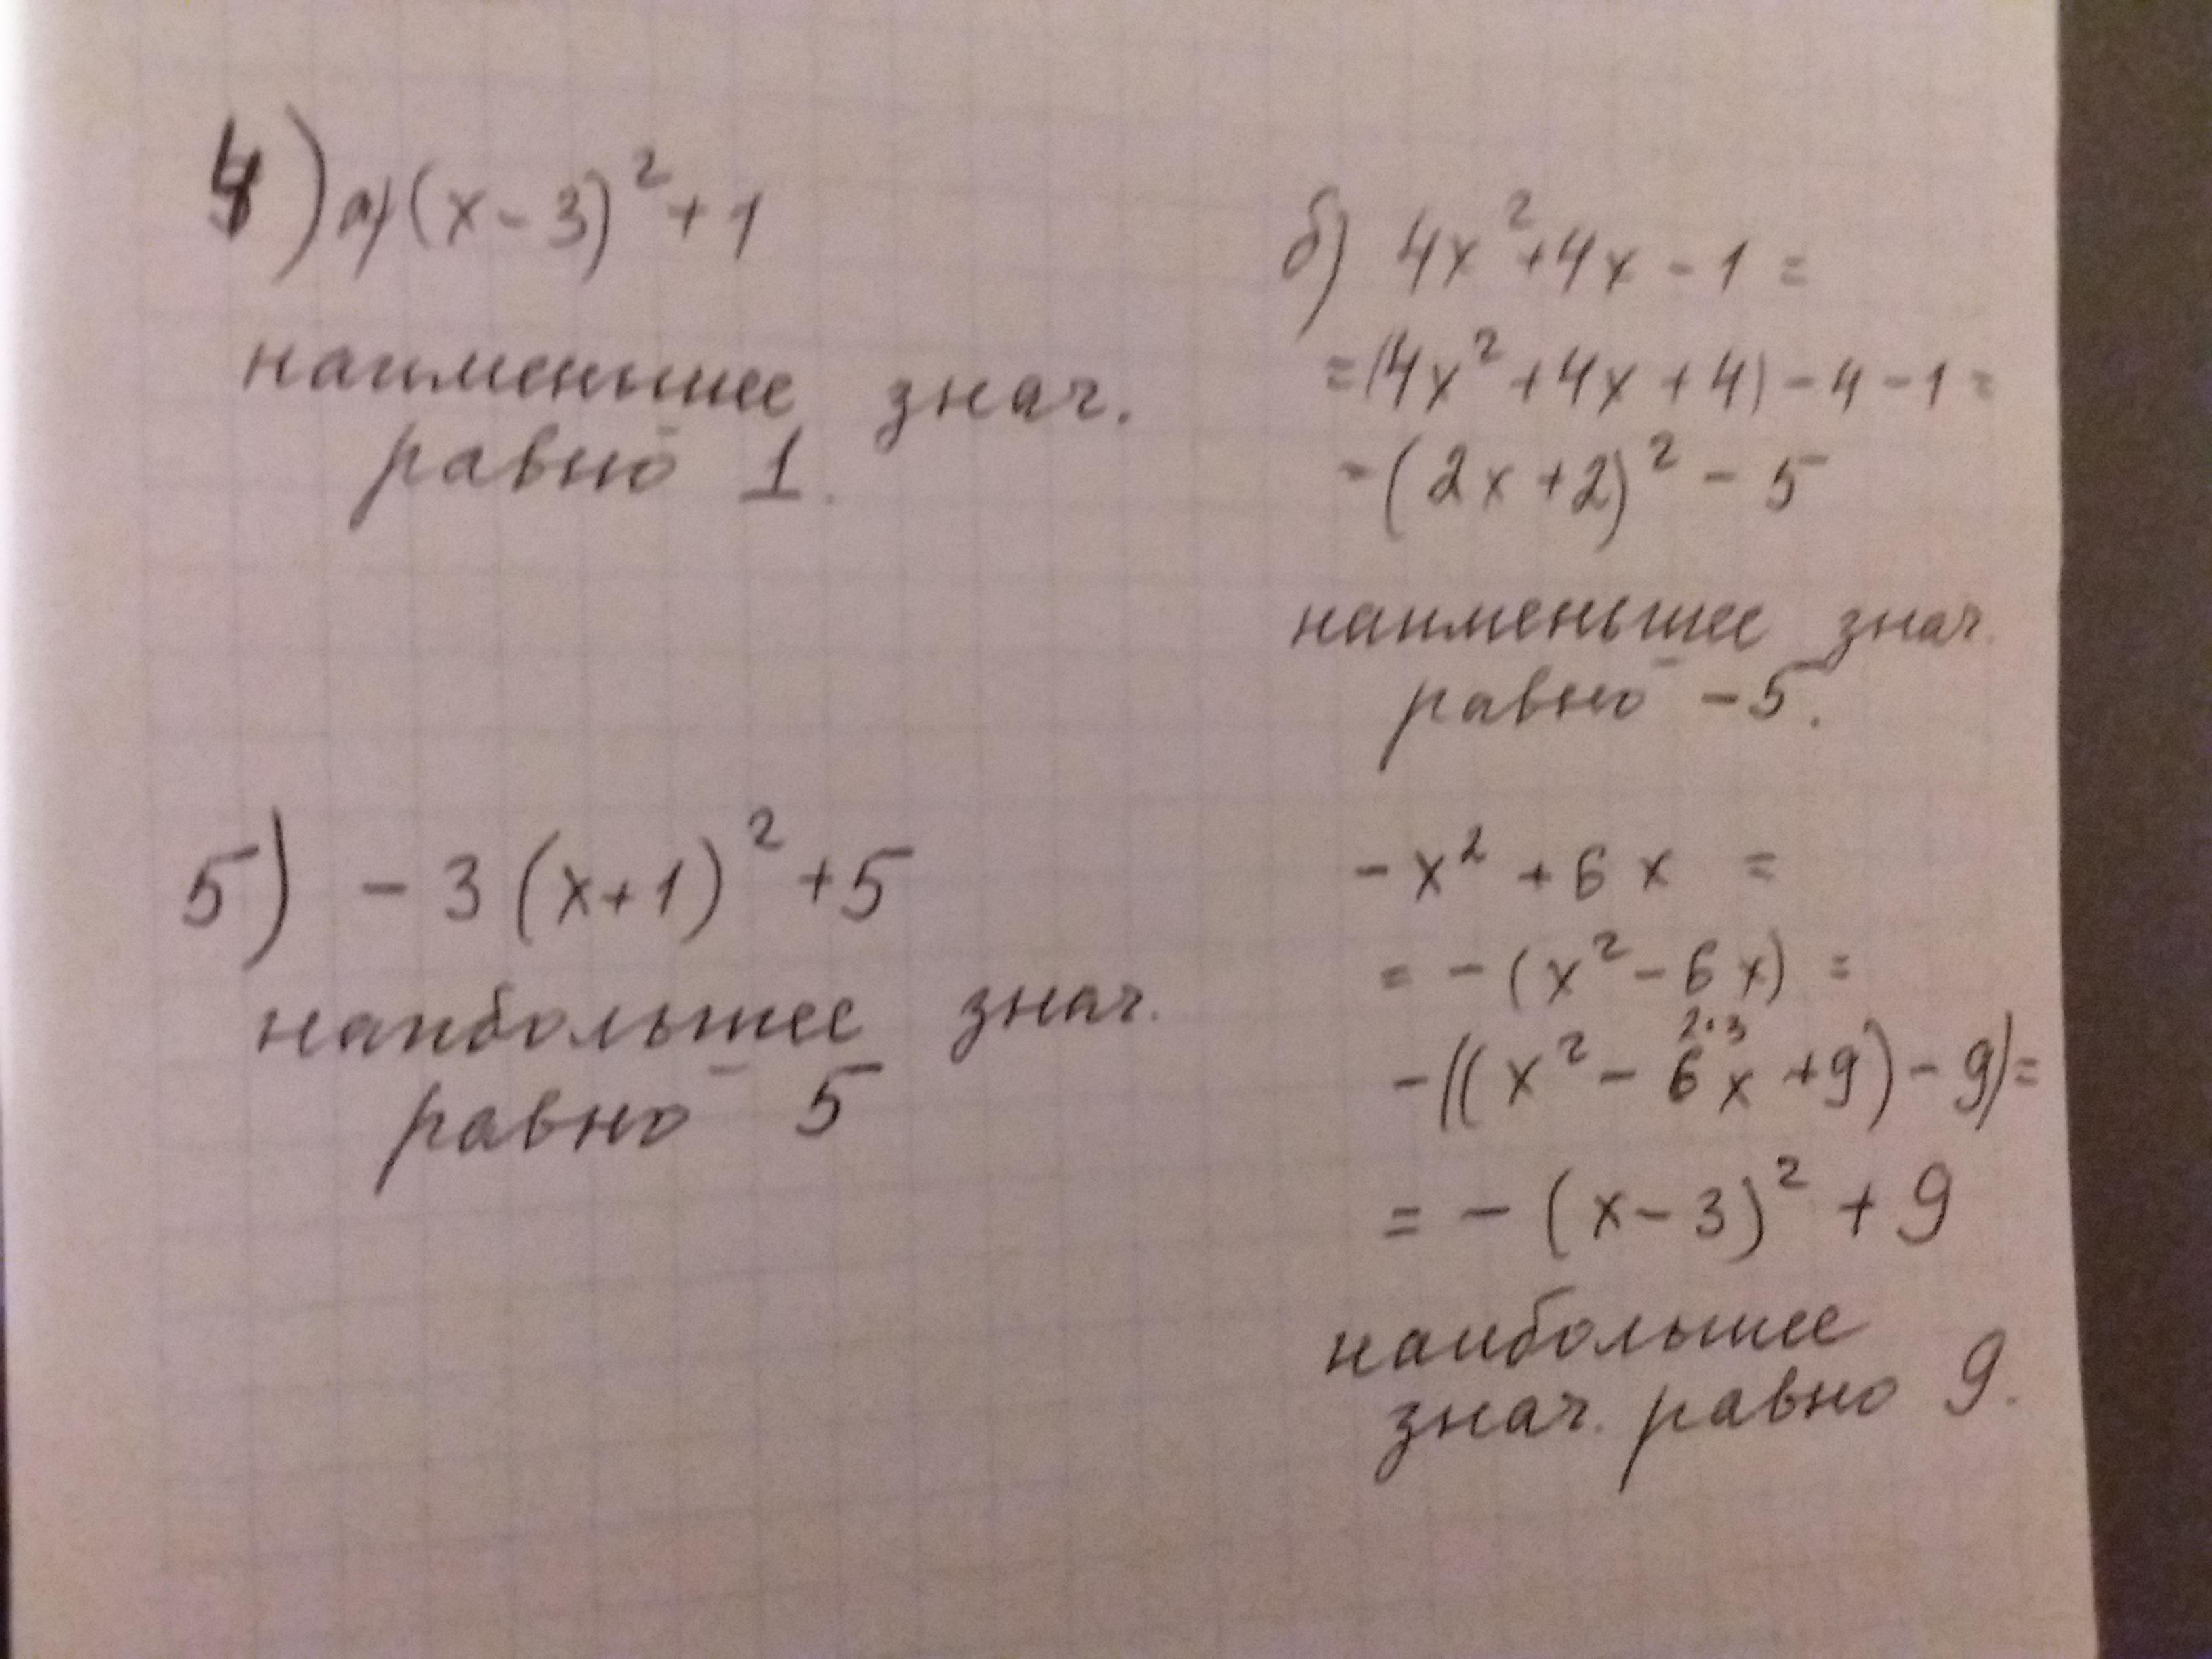 4) а) (x-3)² + 1
наименьшее знач.
равно 1.
б) 4x² + 4x - 1 =
= (4x² + 4x + 4) - 4 - 1 =
= (2x + 2)² - 5
наименьшее знач.
равно -5.
5) - 3 (x+1)² + 5
наибольшее знач.
равно 5
- x² + 6x =
= - (x² - 6x) =
2·3
- ((x² - 6x + 9) - 9) =
= - (x - 3)² + 9
наибольшее
знач. равно 9.